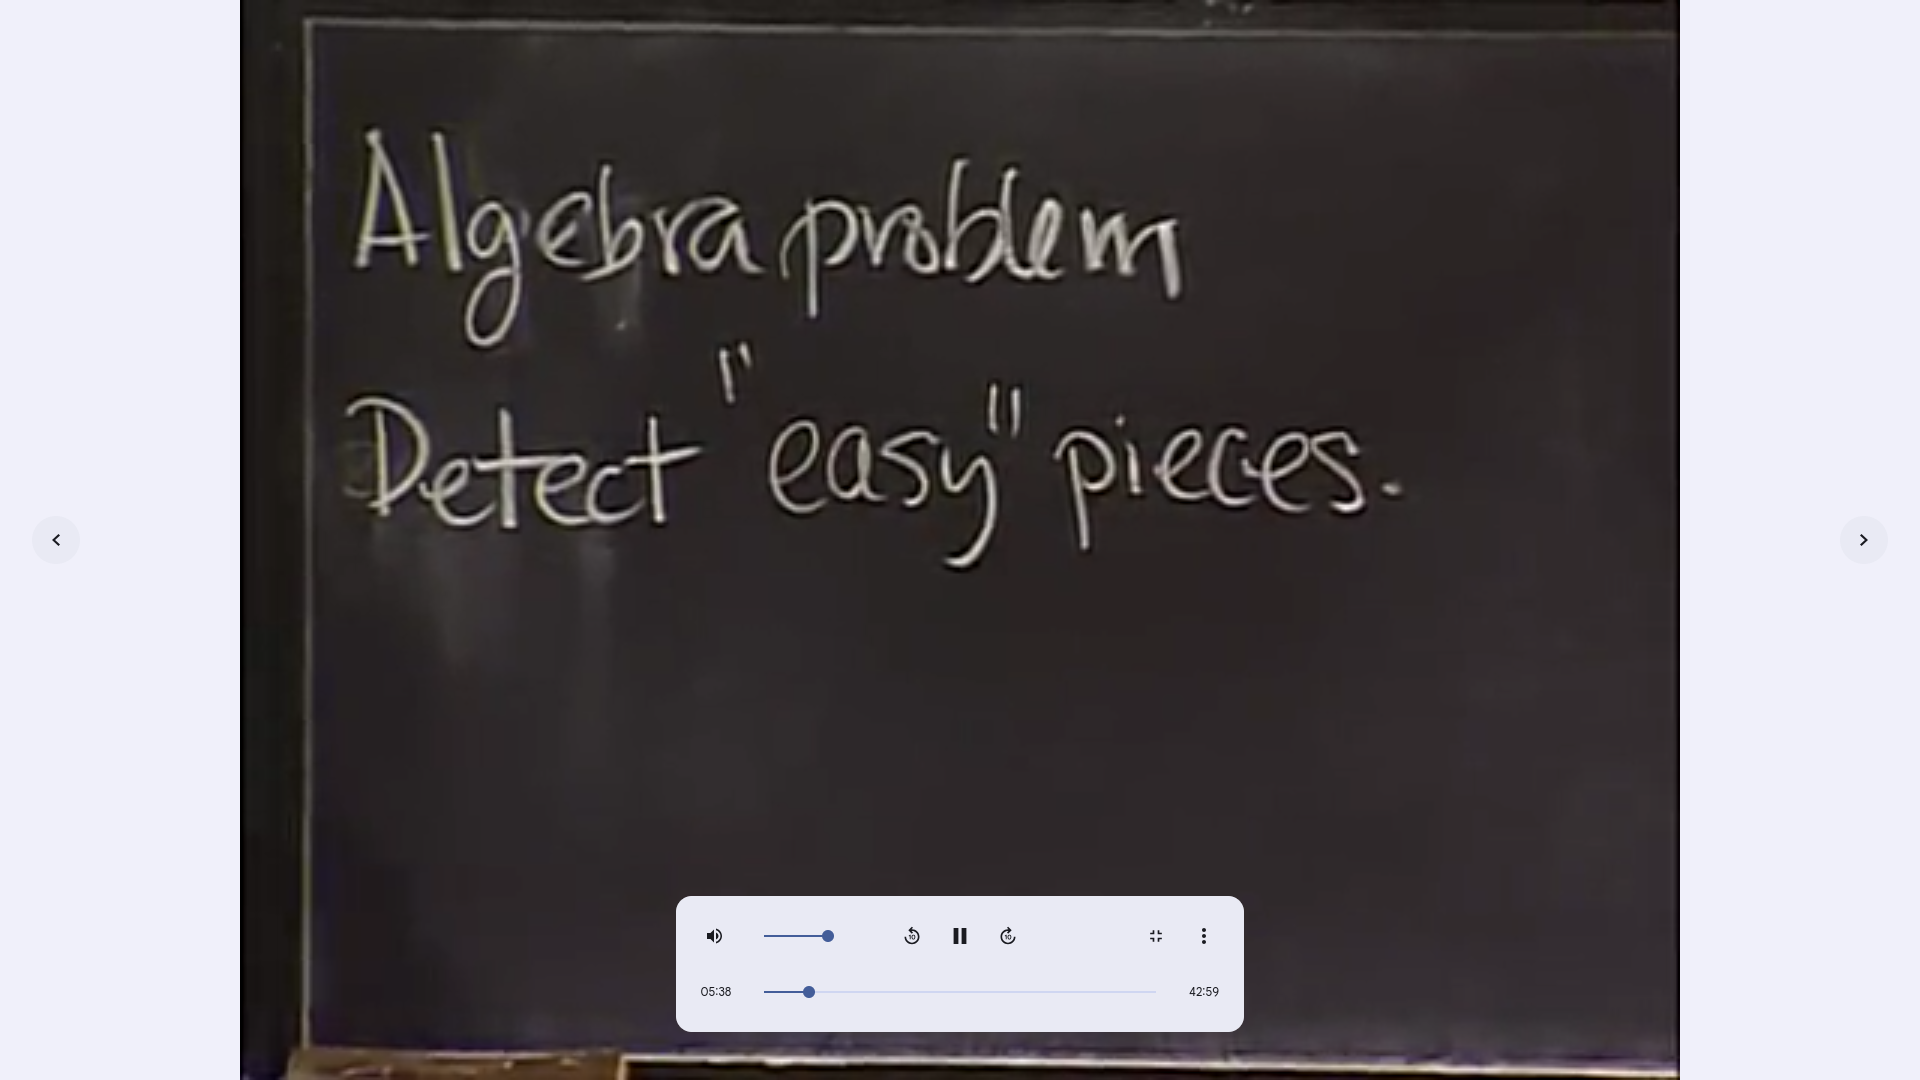 Algebra problem
Detect "easy" pieces.
10
10
05:38
42:59